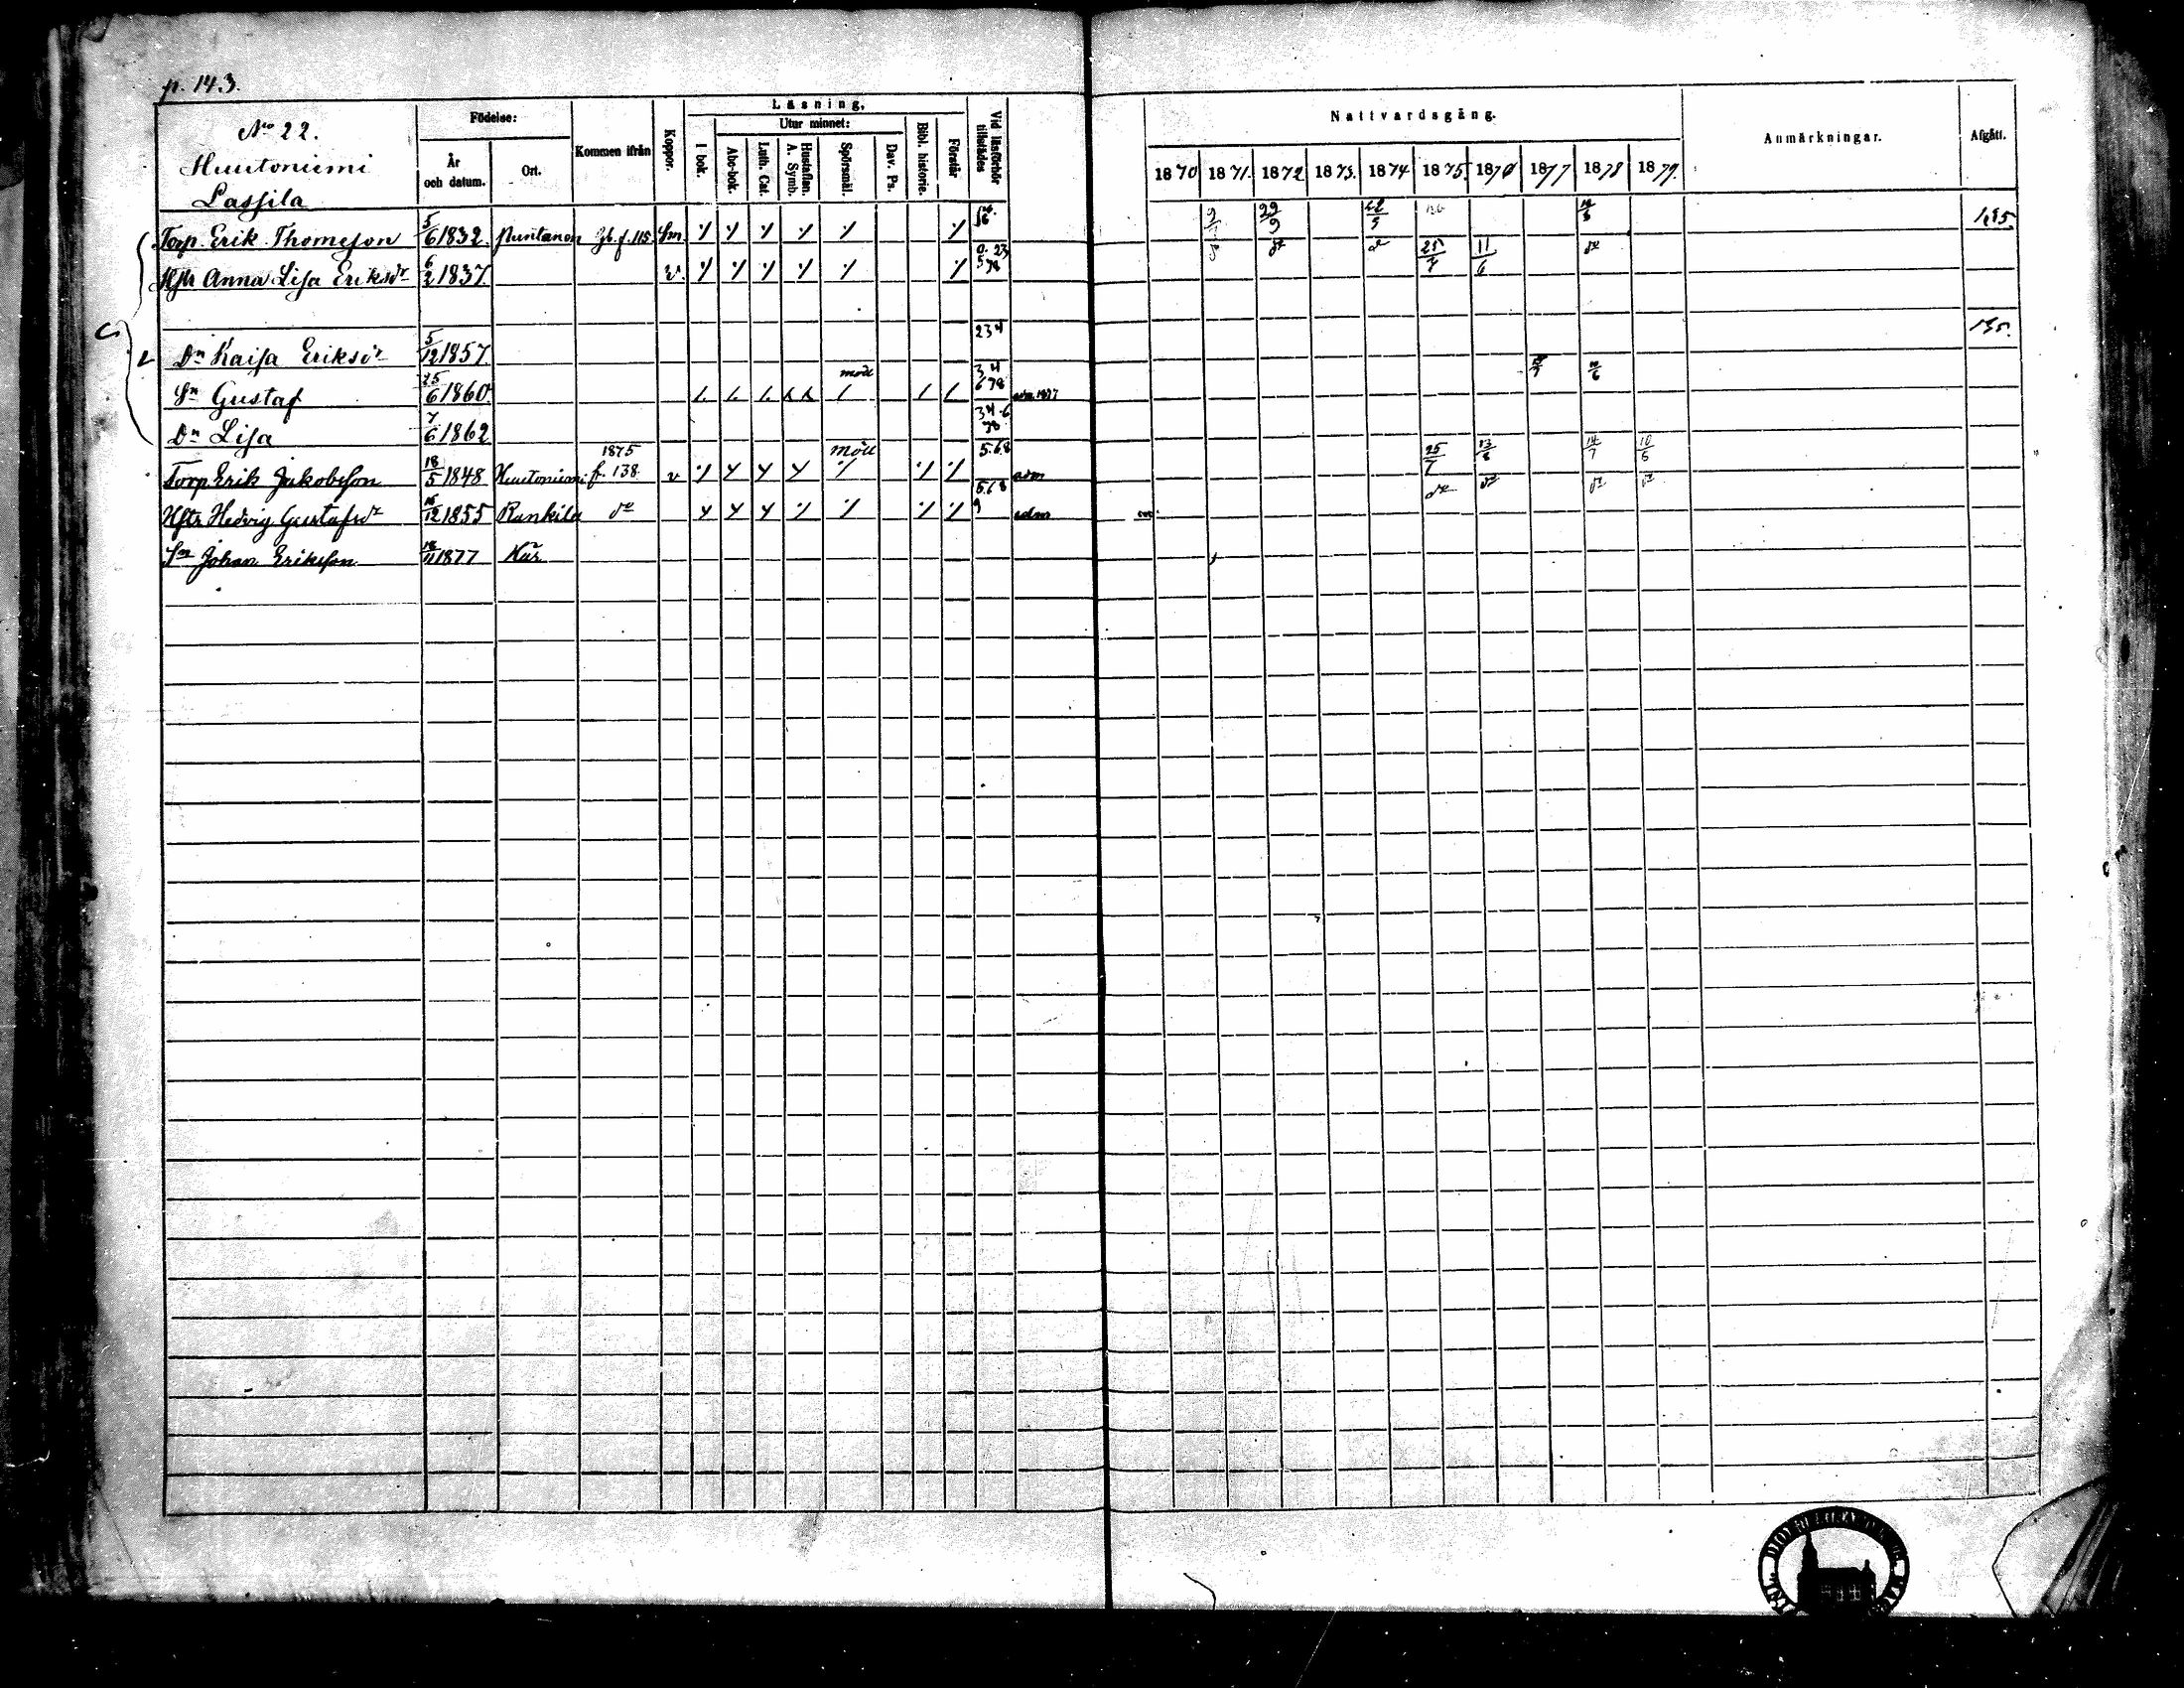 p. 143.
No 22.
Huutoniemi
Lassila
Födelse:
År och datum.
Ort.
Kommen ifrån
Koppor.
Läsning.
I bok.
Utur minnet:
Abc-bok.
Luth. Cat.
Hustaflan. A. Symb.
Spörsmål.
Dav. Ps.
Bibl. historie.
Förstår
Vid läsförhör tillstädes
Nattvardsgång.
1870 1871. 1872 1873. 1874 1875. 1876 1877 1878 1879.
Anmärkningar.
Afgått.
Torp. Erik Thomeson 5/6 1832. Puntanen 9/ 29/9 /5 185.
Hstr Anna Lisa Eriksdr 6/2 1837. v. 78 do 25/7 11/6 do
Dr Kaisa Eriksdr 5/12 1857. 234 135.
Sn Gustaf 25/6 1860. 34 678
Dr Lisa 7/6 1862 34.6 78
Torp Erik Jakobsson 18/5 1848 Huutoniemi 1875 f. 138 v 5.68 adm 25/7 14/7 10/6
Hstr Hedvig Gustafsdr 16/12 1855 Rankila do 5.68 9 adm do do do do
Sn Johan Eriksson 1877 Här